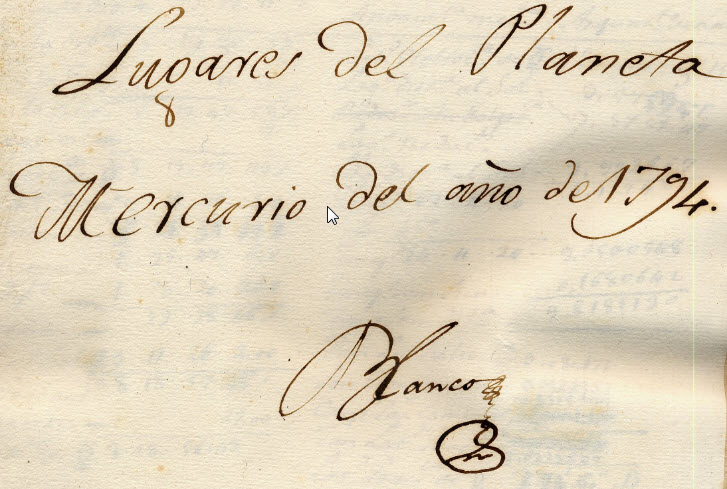 Lugares del Planeta
Mercurio del año de 1794.
Blanco